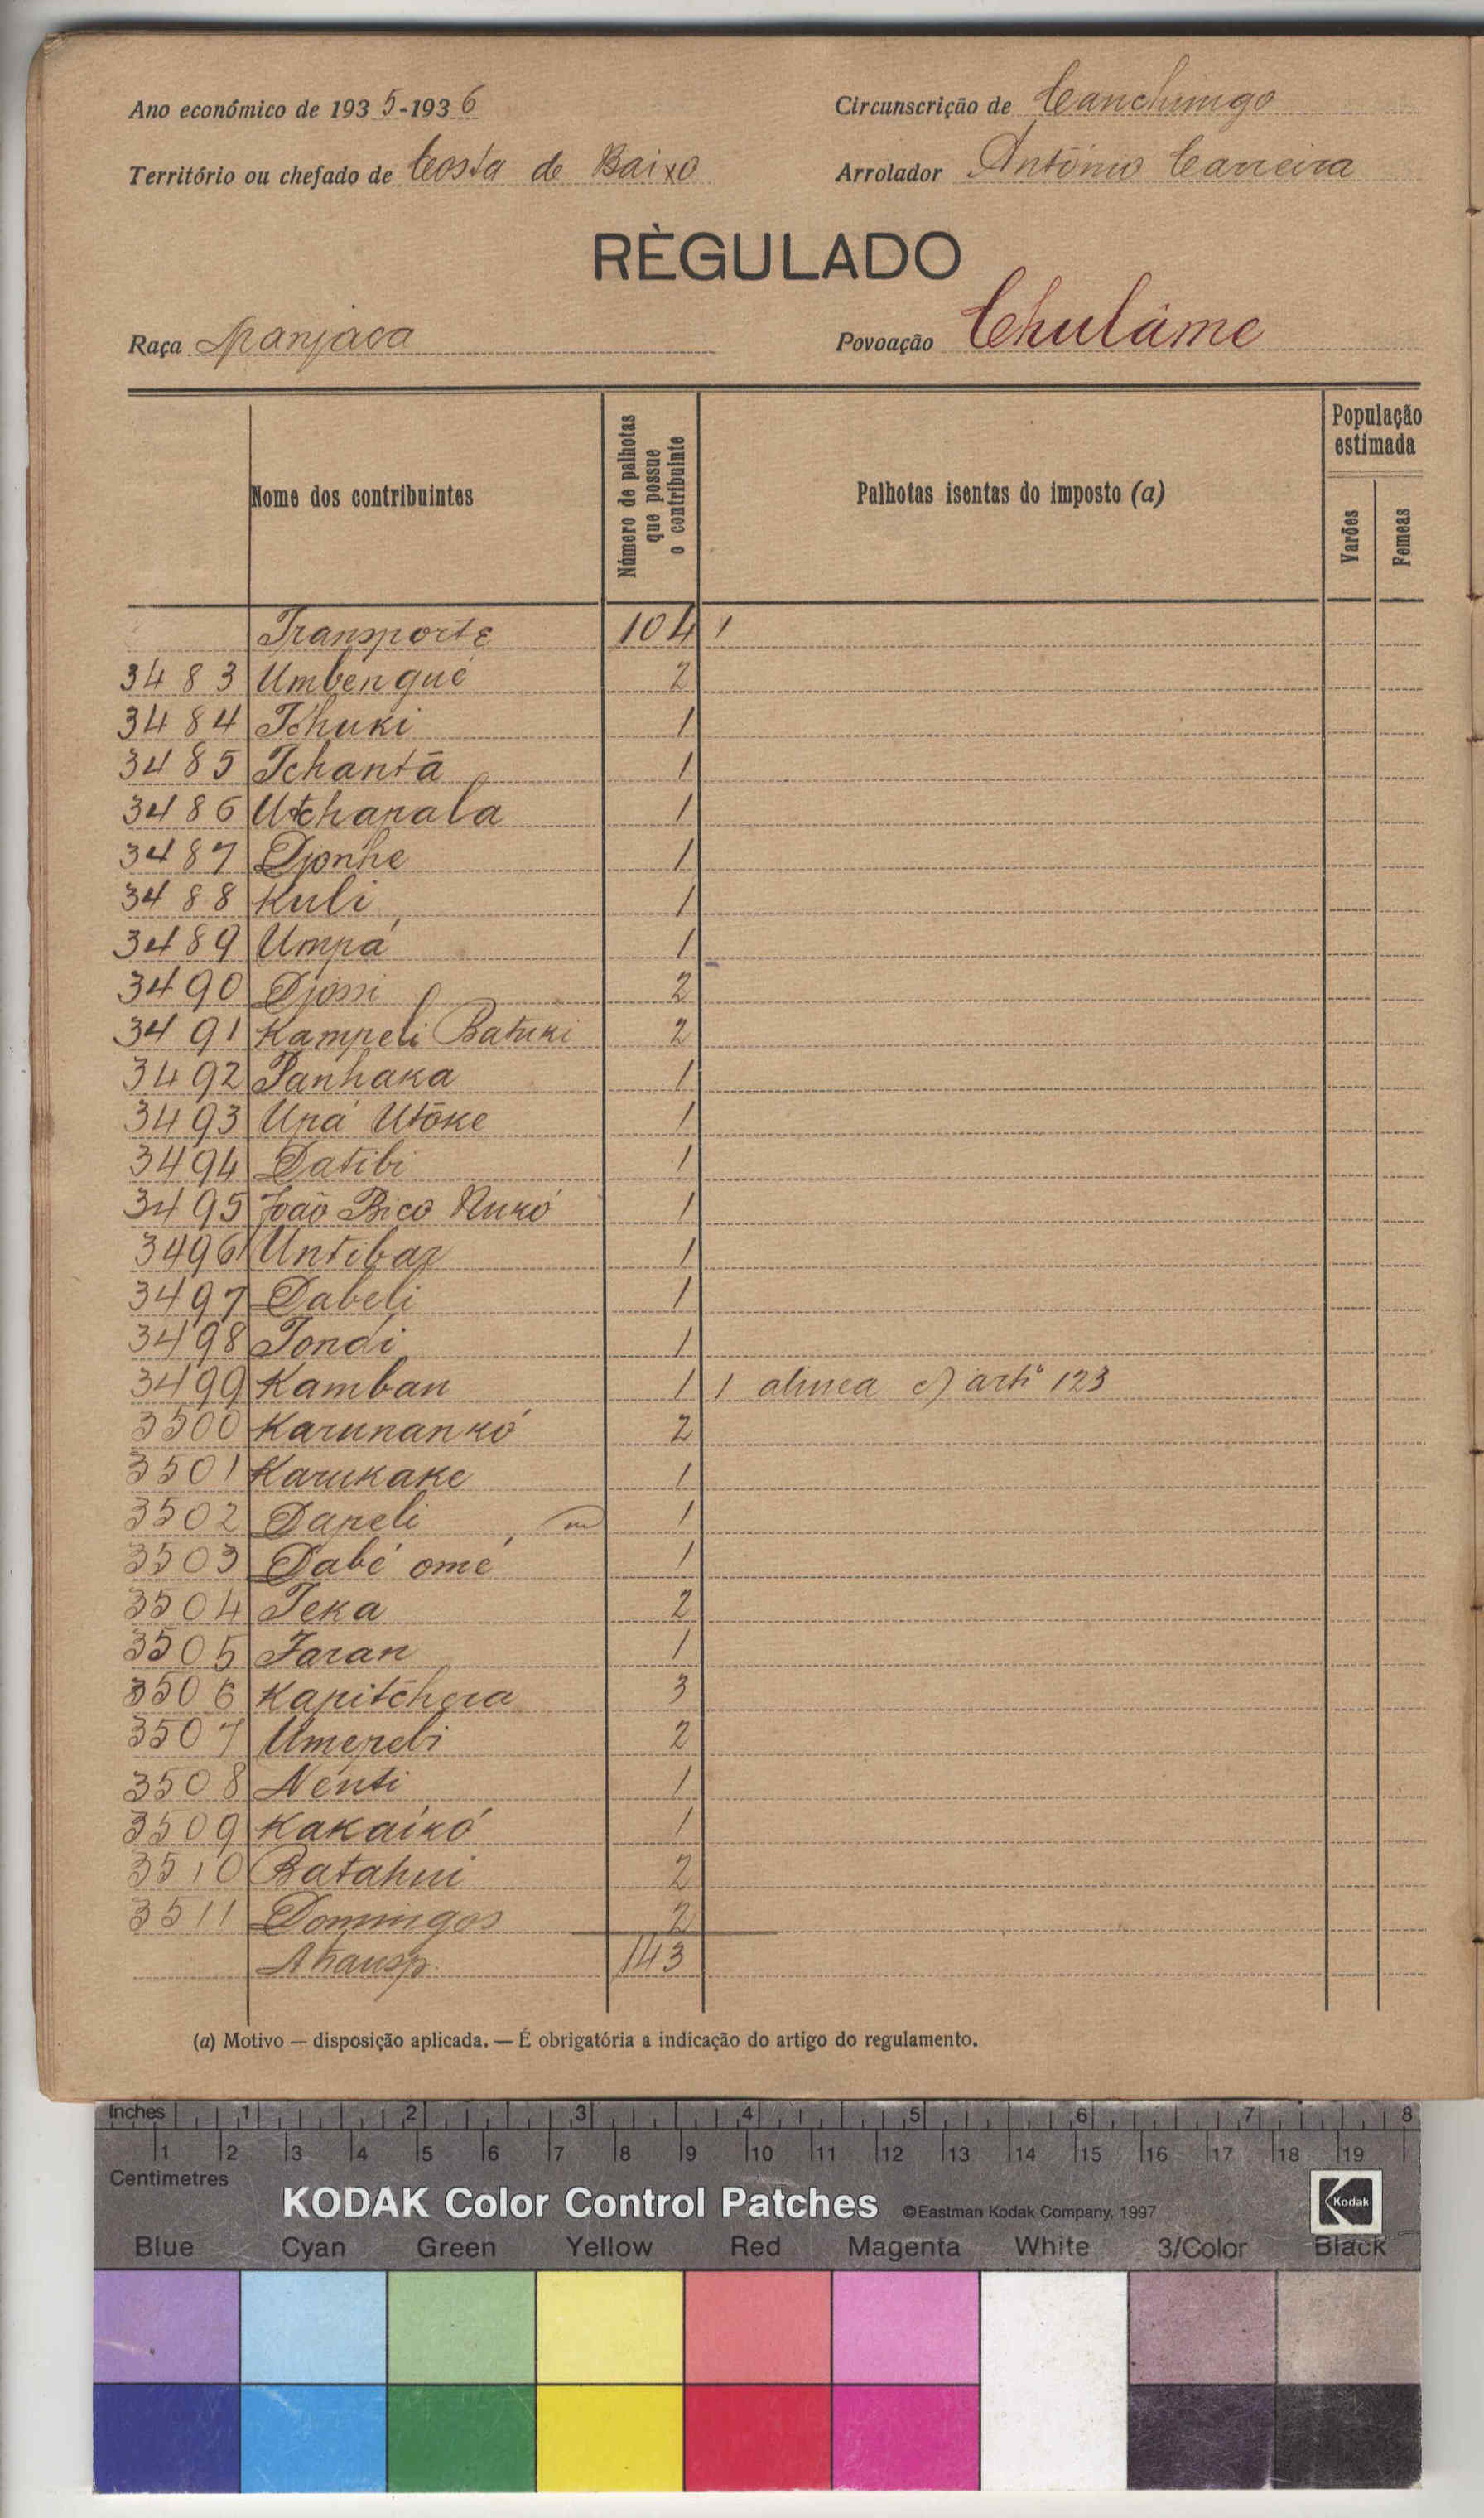 Ano económico de 1935-1936
Circunscrição de Canchungo
Território ou chefado de Costa de Baixo
Arrolador António Carreira
RÈGULADO
Raça Manjaca
Povoação Chulâme
Nome dos contribuintes
Número de palhotas que possue o contribuinte
Palhotas isentas do imposto (a)
População estimada
Varões
Femeas
Transporte 104 1
3483 Umbengué 2
3484 Tchuki 1
3485 Tchantā 1
3486 Utchapala 1
3487 Djonhe 1
3488 Kuli 1
3489 Umpá 1
3490 Djossi 2
3491 Kampeli Batuki 2
3492 Panhaka 1
3493 Upá Utōke 1
3494 Datibi 1
3495 João Bico Nukó 1
3496 Untibar 1
3497 Dabeli 1
3498 Tondi 1
3499 Kamban 1 1 alinea c) artº 123
3500 Karunankó 2
3501 Karukake 1
3502 Dapeli 1
3503 Dabé omé 1
3504 Teka 2
3505 Faran 1
3506 Kapitchera 3
3507 Umepebi 2
3508 Nenti 1
3509 Kakaíkó 1
3510 Batahui 2
3511 Domingos 2
A transp. 143
(a) Motivo — disposição aplicada. — É obrigatória a indicação do artigo do regulamento.
Inches 1 2 3 4 5 6 7 8
1 2 3 4 5 6 7 8 9 10 11 12 13 14 15 16 17 18 19
Centimetres
KODAK Color Control Patches ©Eastman Kodak Company, 1997 Kodak
Blue Cyan Green Yellow Red Magenta White 3/Color Black